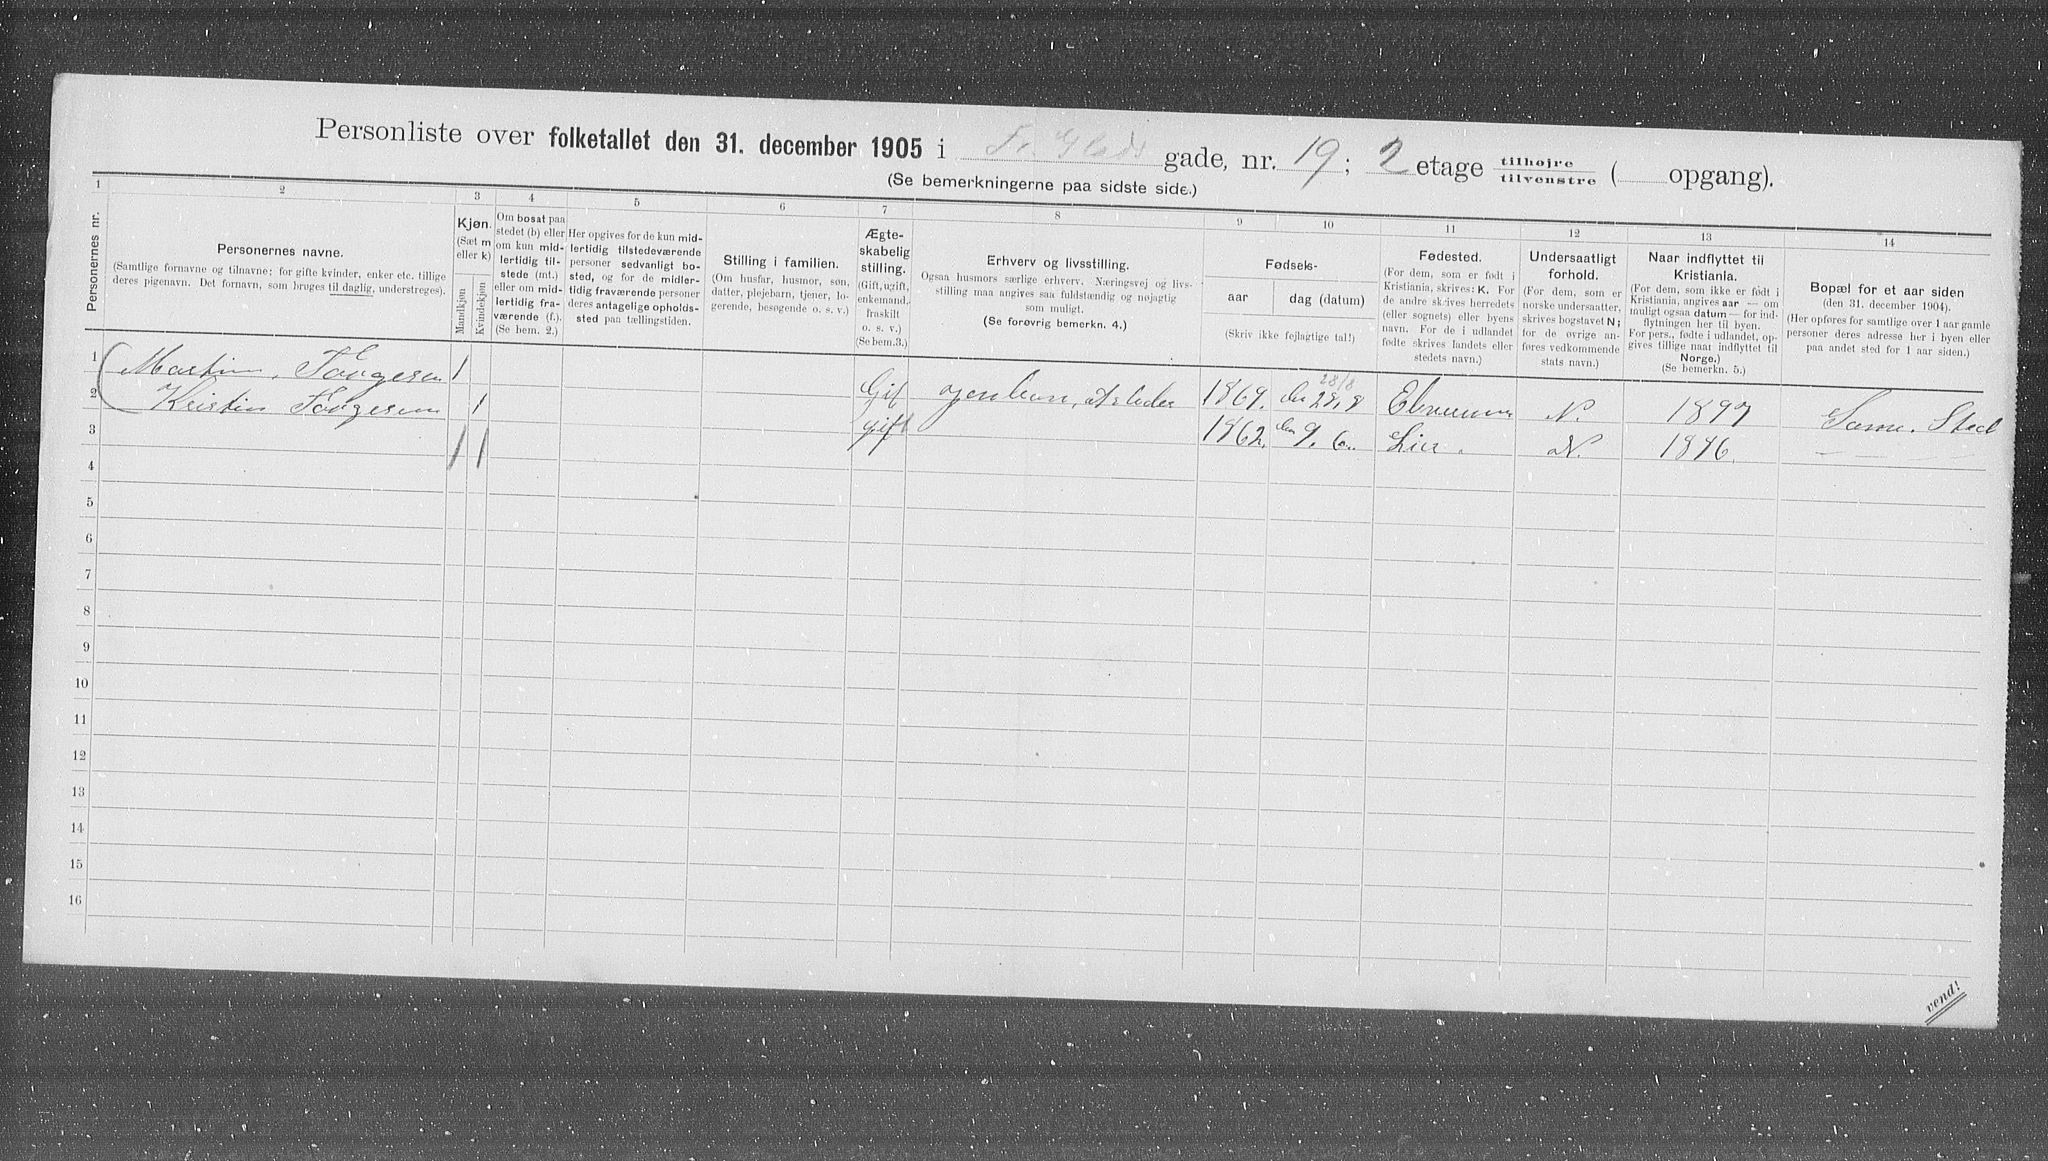 Personliste over folketallet den 31. december 1905 i Fr. Glads gade, nr. 19; 2 etage tilhøjre tilvenstre ( opgang).
(Se bemerkningerne paa sidste side.)
1 2 3 4 5 6 7 8 9 10 11 12 13 14
Personernes nr.
Personernes navne.
(Samtlige fornavne og tilnavne; for gifte kvinder, enker etc. tillige
deres pigenavn. Det fornavn, som bruges til daglig, understreges).
Kjøn.
(Sæt m
eller k)
Mandkjøn
Kvindekjøn
Om bosat paa
stedet (b) eller
om kun mid-
lertidig til-
stede (mt.)
eller om mid-
lertidig fra-
værende (f.).
(Se bem. 2.)
Her opgives for de kun mid-
lertidig tilstedeværende
personer sedvanligt bo-
sted, og for de midler-
tidig fraværende personer
deres antagelige opholds-
sted paa tællingstiden.
Stilling i familien.
(Om husfar, husmor, søn,
datter, plejebarn, tjener, lo-
gerende, besøgende o. s. v.)
Ægte-
skabelig
stilling.
(Gift, ugift,
enkemand,
fraskilt
o. s. v.)
(Se bem.3.)
Erhverv og livsstilling.
Ogsaa husmors særlige erhverv. Næringsvej og livs-
stilling maa angives saa fuldstændig og nøjagtig
som muligt.
(Se forøvrig bemerkn. 4.)
Fødsels-
aar
dag (datum)
(Skriv ikke fejlagtige tal!)
Fødested.
(For dem, som er født i
Kristiania, skrives: K. For
de andre skrives herredets
(eller sognets) eller byens
navn. For de i udlandet
fødte skrives landets eller
stedets navn.)
Undersaatligt
forhold.
(For dem, som er
norske undersaatter,
skrives bogstavet N;
for de øvrige an-
føres vedkommende
stats navn.)
Naar indflyttet til
Kristiania.
(For dem, som ikke er født i
Kristiania, angives aar — om
muligt ogsaa datum — for ind-
flytningen her til byen.
For pers., fødte i udlandet, op-
gives tillige naar indflyttet til
Norge.)
(Se bemerkn. 5.)
Bopæl for et aar siden
(den 31. december 1904).
(Her opføres for samtlige over 1 aar gamle
personer deres adresse her i byen eller
paa andet sted for 1 aar siden.)
28/8
1 Martin 1 Gif 1869. den 28, 8 N. 1897 Samme. Sted
2 Kristin 1 gift 1862. den 9. 6 Lier. N. 1896.
3 1 1
4
5
6
7
8
9
10
11
12
13
14
15
16
vend!